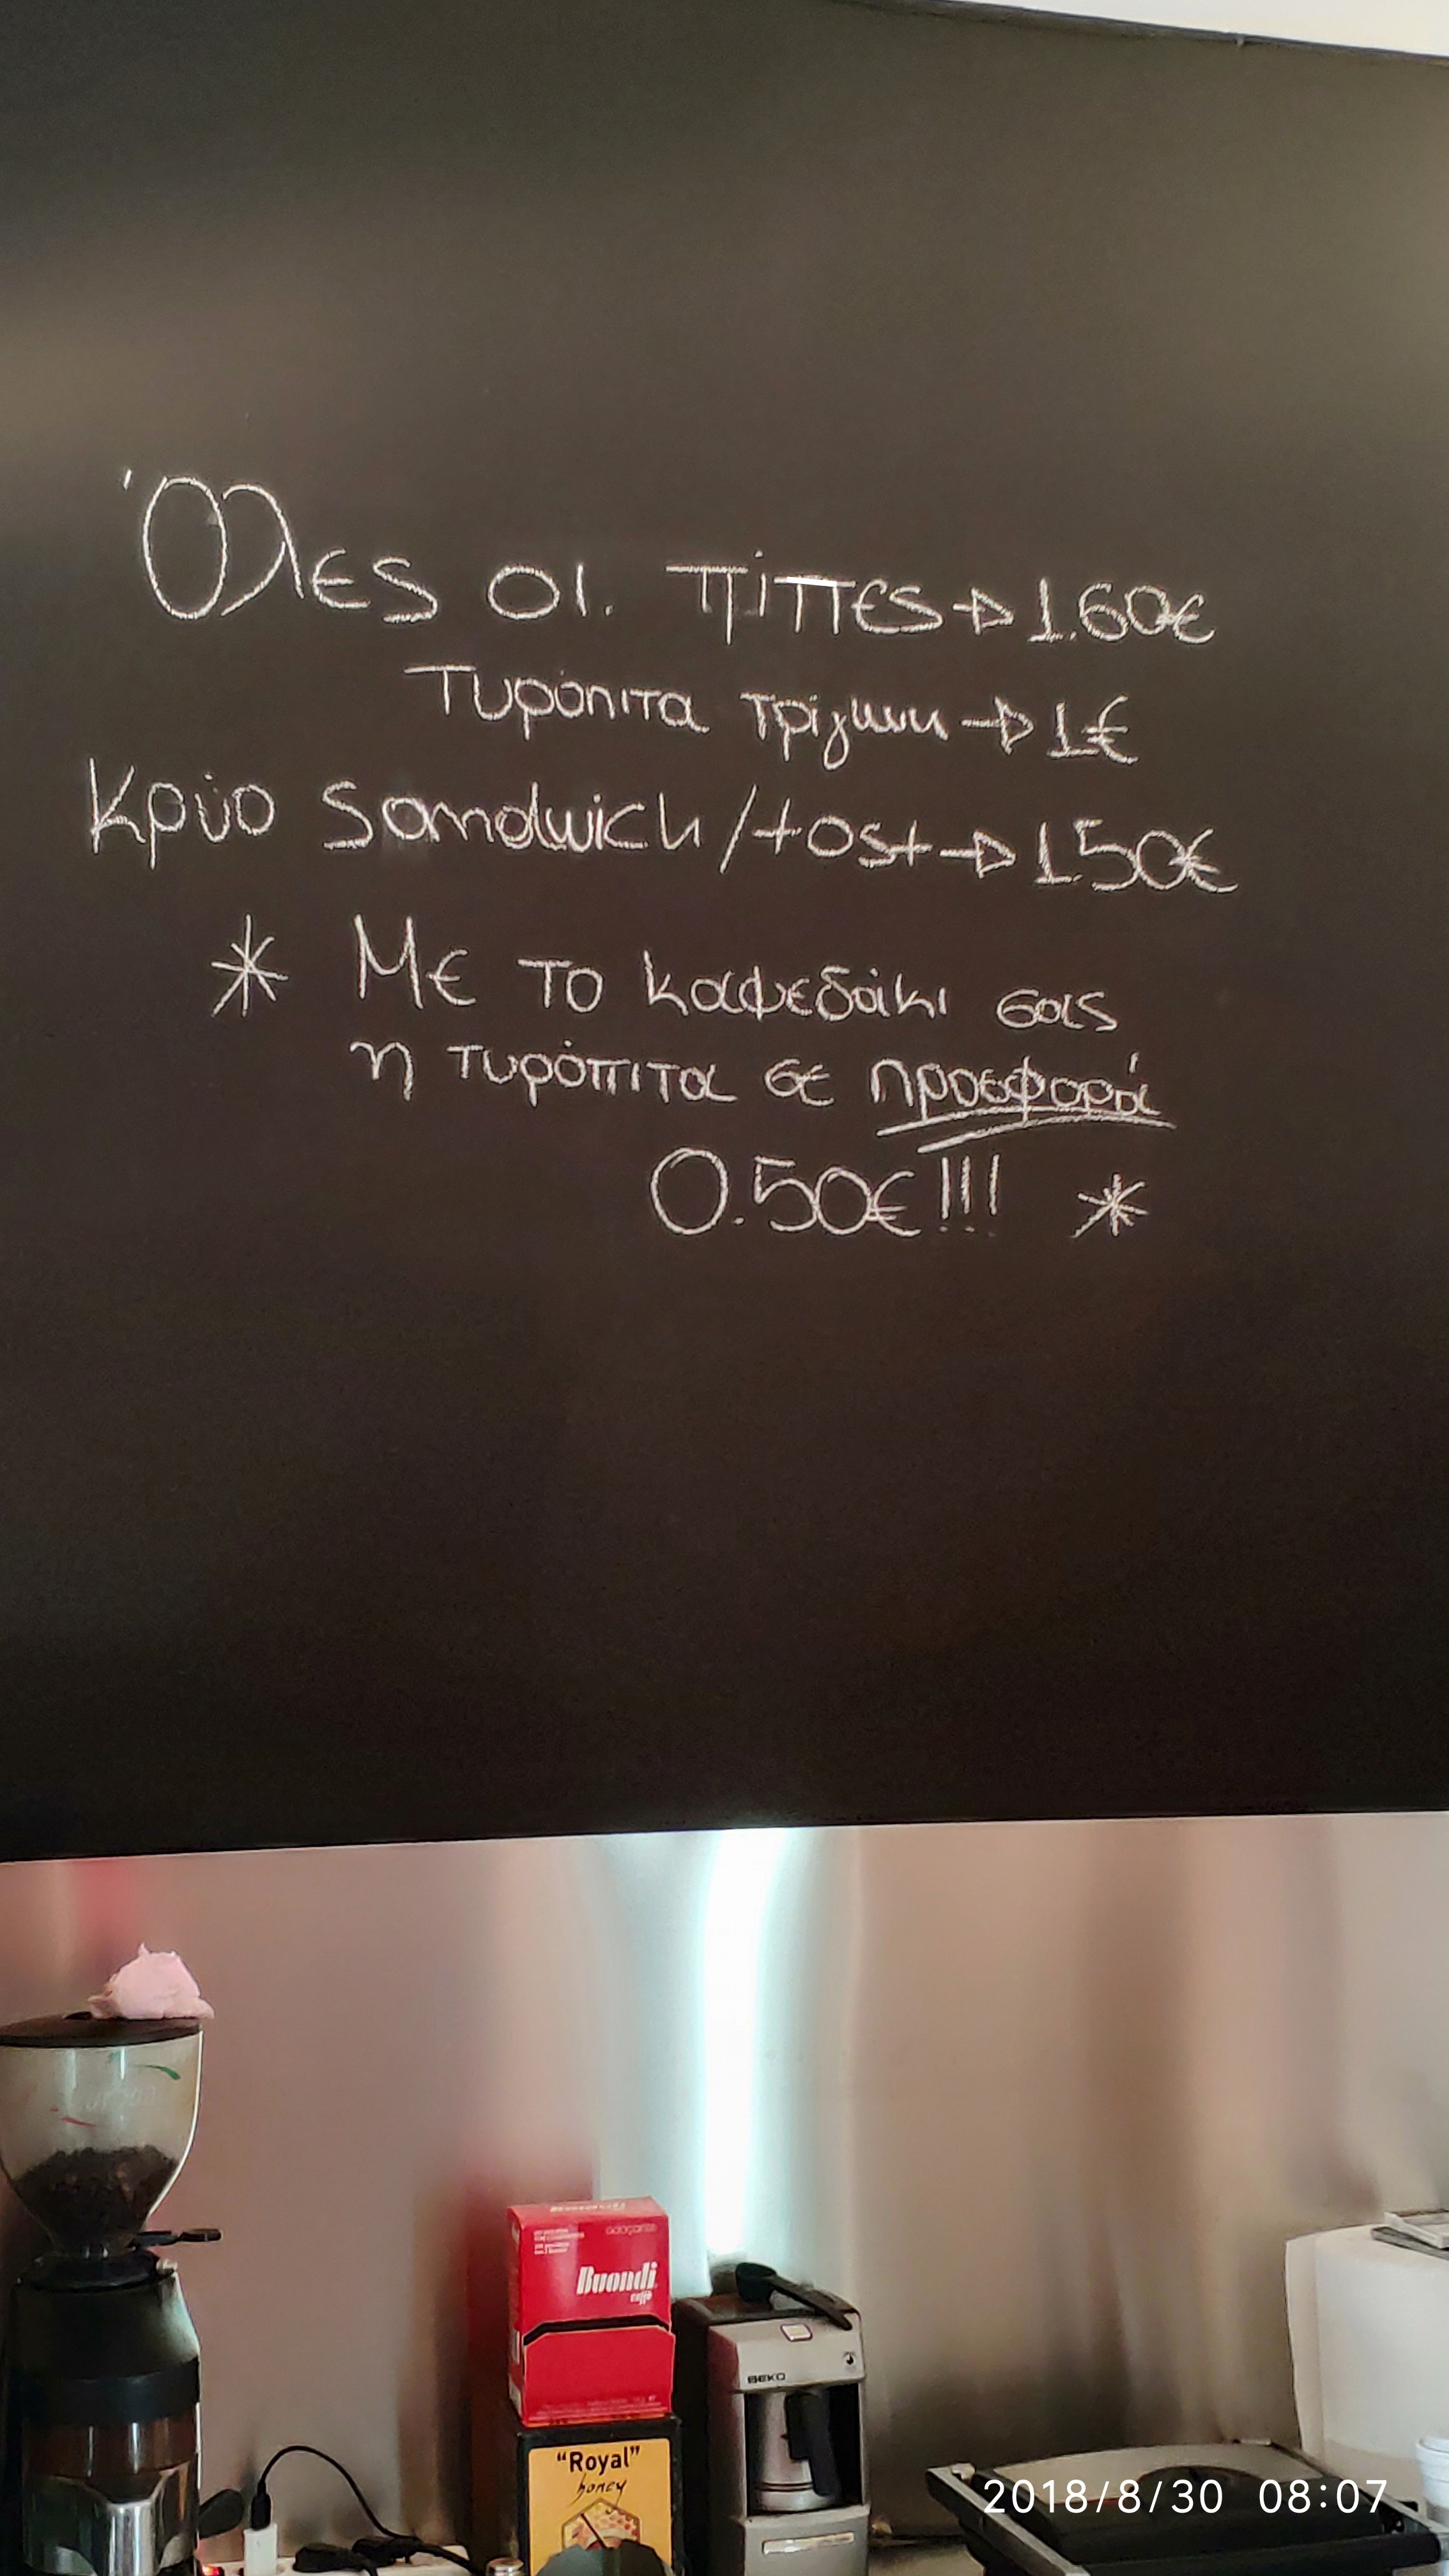 Όλες οι. πίττες→1.60€
Τυρόπιτα τρίγωνη→1€
Κρύο Sandwich/tost→1.50€
* Με το καφεδάκι σας
η τυρόπιτα σε προσφορά
0.50€!!! *
Buondi
caffè
BEKO
"Royal"
honey
2018/8/30 08:07